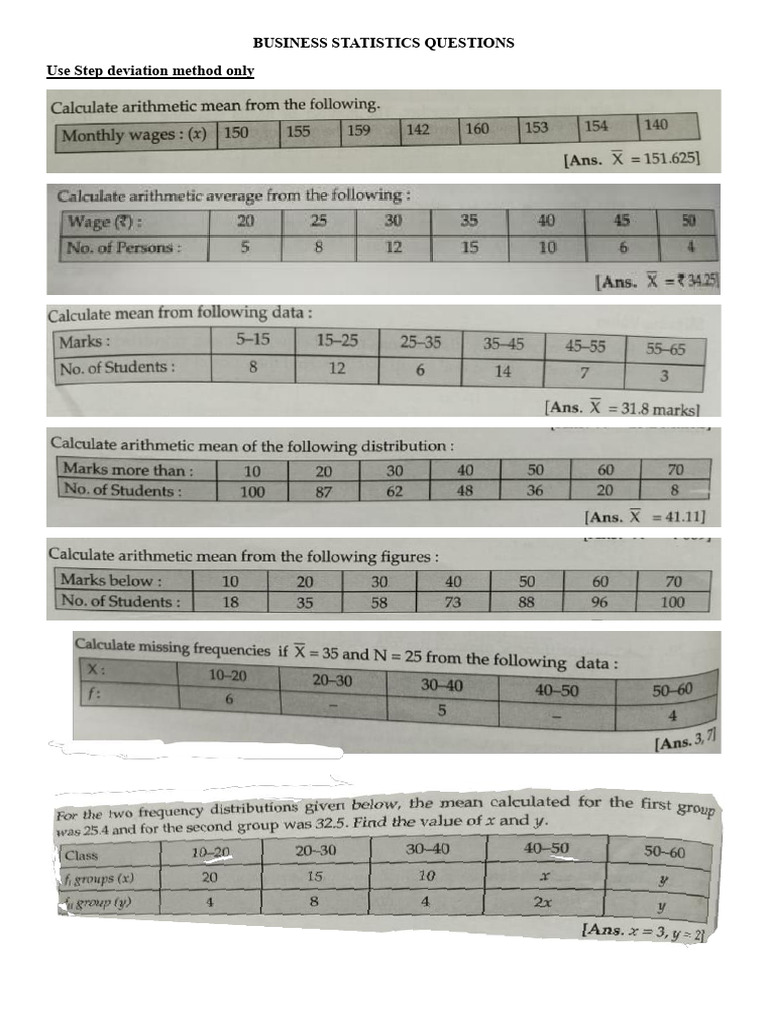 BUSINESS STATISTICS QUESTIONS
Use Step deviation method only
Calculate arithmetic mean from the following.
Monthly wages : (x) 150 155 159 142 160 153 154 140
[Ans. X̅ = 151.625]
Calculate arithmetic average from the following :
Wage (₹) : 20 25 30 35 40 45 50
No. of Persons : 5 8 12 15 10 6 4
[Ans. X̅ = ₹ 34.25]
Calculate mean from following data :
Marks : 5–15 15–25 25–35 35–45 45–55 55–65
No. of Students : 8 12 6 14 7 3
[Ans. X̅ = 31.8 marks]
Calculate arithmetic mean of the following distribution :
Marks more than : 10 20 30 40 50 60 70
No. of Students : 100 87 62 48 36 20 8
[Ans. X̅ = 41.11]
Calculate arithmetic mean from the following figures :
Marks below : 10 20 30 40 50 60 70
No. of Students : 18 35 58 73 88 96 100
Calculate missing frequencies if X̅ = 35 and N = 25 from the following data :
X : 10–20 20–30 30–40 40–50 50–60
f : 6 – 5 – 4
[Ans. 3, 7]
For the two frequency distributions given below, the mean calculated for the first group
was 25.4 and for the second group was 32.5. Find the value of x and y.
Class 10–20 20–30 30–40 40–50 50–60
groups (x) 20 15 10 x y
group (y) 4 8 4 2x y
[Ans. x = 3, y = 2]